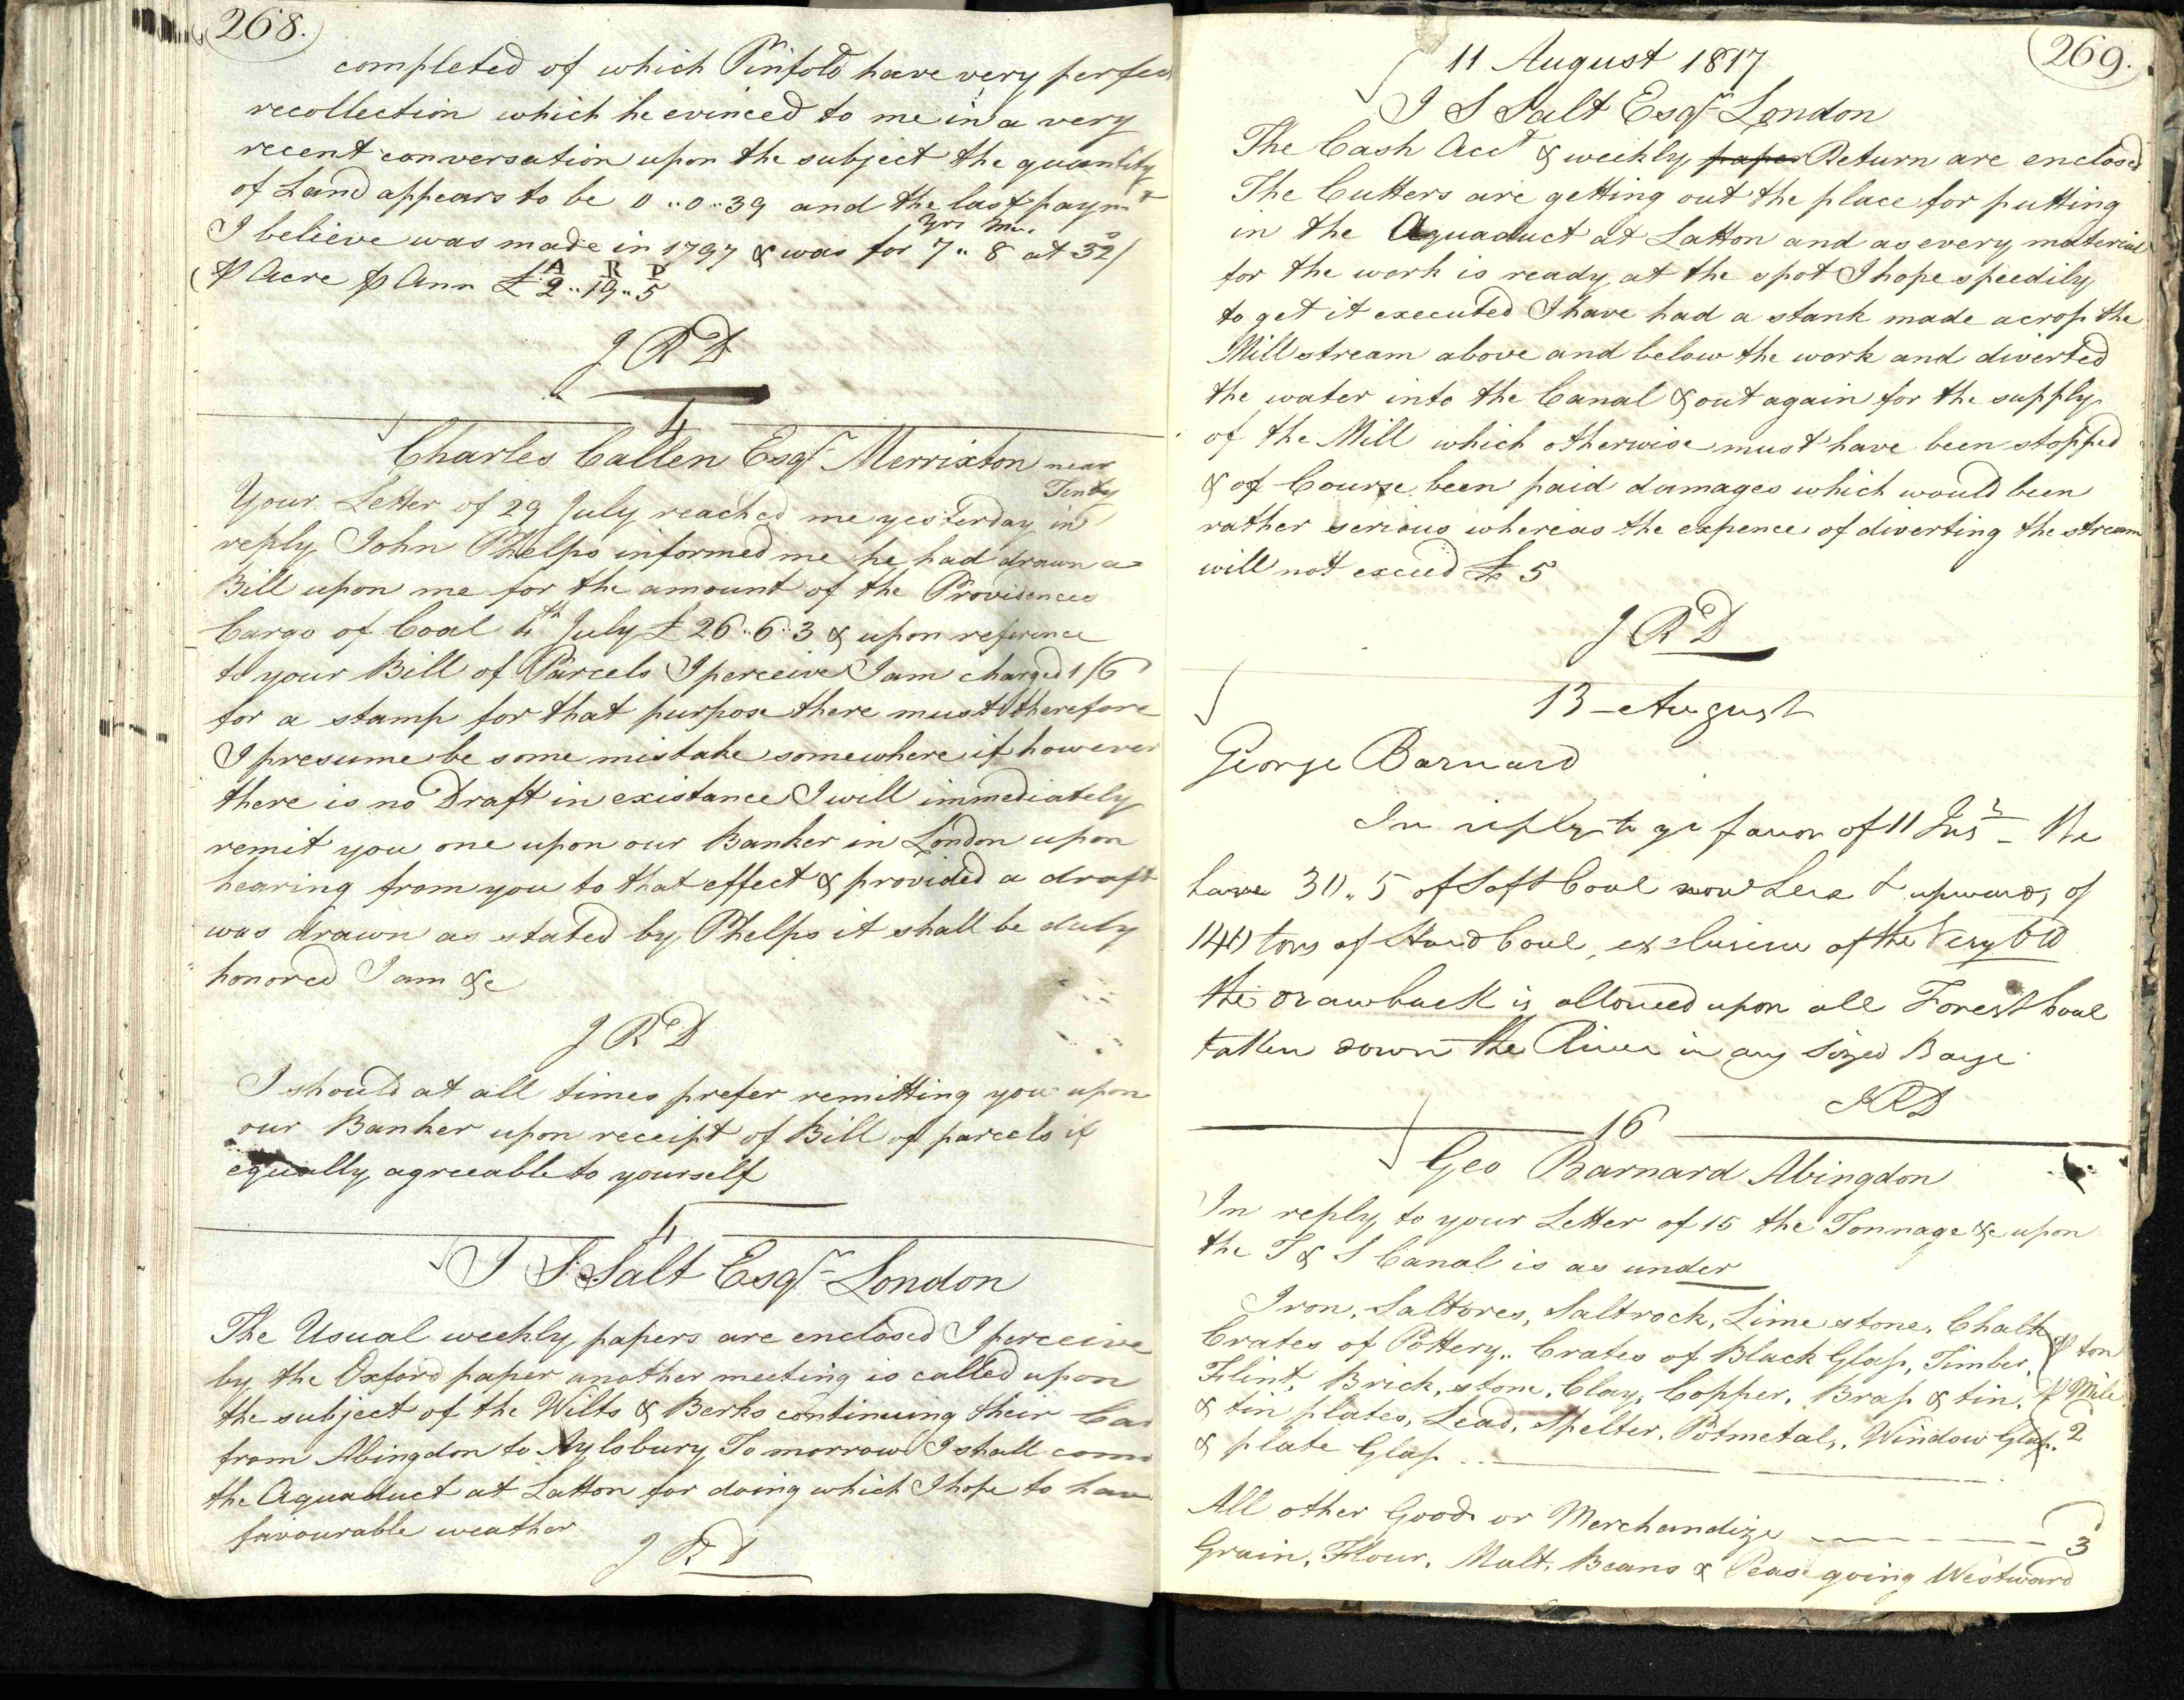 268.
completed of which Pinfold have very perfect
recollection which he evinced to me in a very
recent conversation upon the subject the quantity
of Land appears to be 0 .. 0 .. 39 and the last paymt
Yrs Mos
I believe was made in 1797 & was for 7 .. 8 at 32/
A R P
⅌ Acre ⅌ Ann £ 2 .. 19 .. 5
J R D
4
Charles Callen Esqr Merrixton near
Tenby
Your Letter of 29 July reached me yesterday in
reply John Phelps informed me he had drawn a
Bill upon me for the amount of the Providences
Cargo of Coal 4th July £ 26 .. 6 .. 3 & upon reference
to your Bill of Parcels I perceive I am charged 1/6
for a stamp for that purpose there must therefore
I presume be some mistake somewhere if however
there is no Draft in existance I will immediately
remit you one upon our Banker in London upon
hearing from you to that effect & provided a draft
was drawn as stated by Phelps it shall be duly
honored I am &c
J R D
I should at all times prefer remitting you upon
our Banker upon receipt of Bill of parcels if
equally agreeable to yourself
4
J S Salt Esqr London
The Usual weekly papers are enclosed I perceive
by the Oxford paper another meeting is called upon
the subject of the Wilts & Berks continuing their Ca
from Abingdon to Aylsbury To morrow I shall com
the Aquaduct at Latton for doing which I hope to have
favourable weather
J R D
269.
11 August 1817
J S Salt Esqr London
The Cash Acct & weekly paper Return are enclosed
The Cutters are getting out the place for putting
in the Aquaduct at Latton and as every material
for the work is ready at the spot I hope speedily
to get it executed I have had a stank made across the
Mill stream above and below the work and diverted
the water into the Canal & out again for the supply
of the Mill which otherwise must have been stopped
& of Course been paid damages which would been
rather serious whereas the expence of diverting the stream
will not exceed £ 5
J R D
13 August
George Barnard
In reply to yr favor of 11 Inst We
have 30 .. 5 of Soft Coal now here & upwards of
140 tons of Hard Coal, exclusive of the Very Old
the drawback is allowed upon all Forest Coal
taken down the River in any sized Barge
JRD
16
Geo Barnard Abingdon
In reply to your Letter of 15 the Tonnage &c upon
the T & S Canal is as under
Iron, Saltores, Saltrock, Lime stone, Chalk
Crates of Pottery, Crates of Black Glass, Timber, ⅌ ton
Flint, Brick, stone, Clay, Copper, Brass & tin, ⅌ Mile
& tin plates, Lead, Spelter, Potmetal, Window Glass. 2
& plate Glass
All other Goods or Merchandize 3
Grain, Flour, Malt, Beans & Pease going Westward